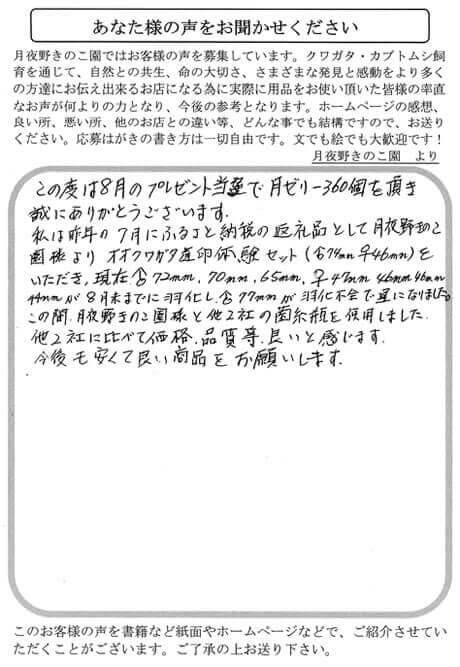 あなた様の声をお聞かせください
月夜野きのこ園ではお客様の声を募集しています。クワガタ・カブトムシ飼
育を通じて、自然との共生、命の大切さ、さまざまな発見と感動をより多く
の方達にお伝え出来るお店になる為に実際に用品をお使い頂いた皆様の率直
なお声が何よりの力となり、今後の参考となります。ホームページの感想、
良い所、悪い所、他のお店との違い等、どんな事でも結構ですので、お送り
ください。応募はがきの書き方は一切自由です。文でも絵でも大歓迎です！
月夜野きのこ園　より
この度は8月のプレゼント当選で月ゼリー360個を頂き
誠にありがとうございます。
私は昨年の7月にふるさと納税の返礼品として月夜野きのこ
園様より オオクワガタ産卵体験セット(♂74mm ♀46mm)を
いただき、現在♂72mm, 70mm, 65mm, ♀47mm 46mm 46mm
44mmが8月末までに羽化し、♂77mmが羽化不全で星になりました。
この間、月夜野きのこ園様と他2社の菌糸瓶を使用しました。
他2社に比べて価格、品質等、良いと感じます。
今後も安くて良い商品をお願いします。
このお客様の声を書籍など紙面やホームページなどで、ご紹介させてい
ただくことがございます。ご了承の上お送り下さい。